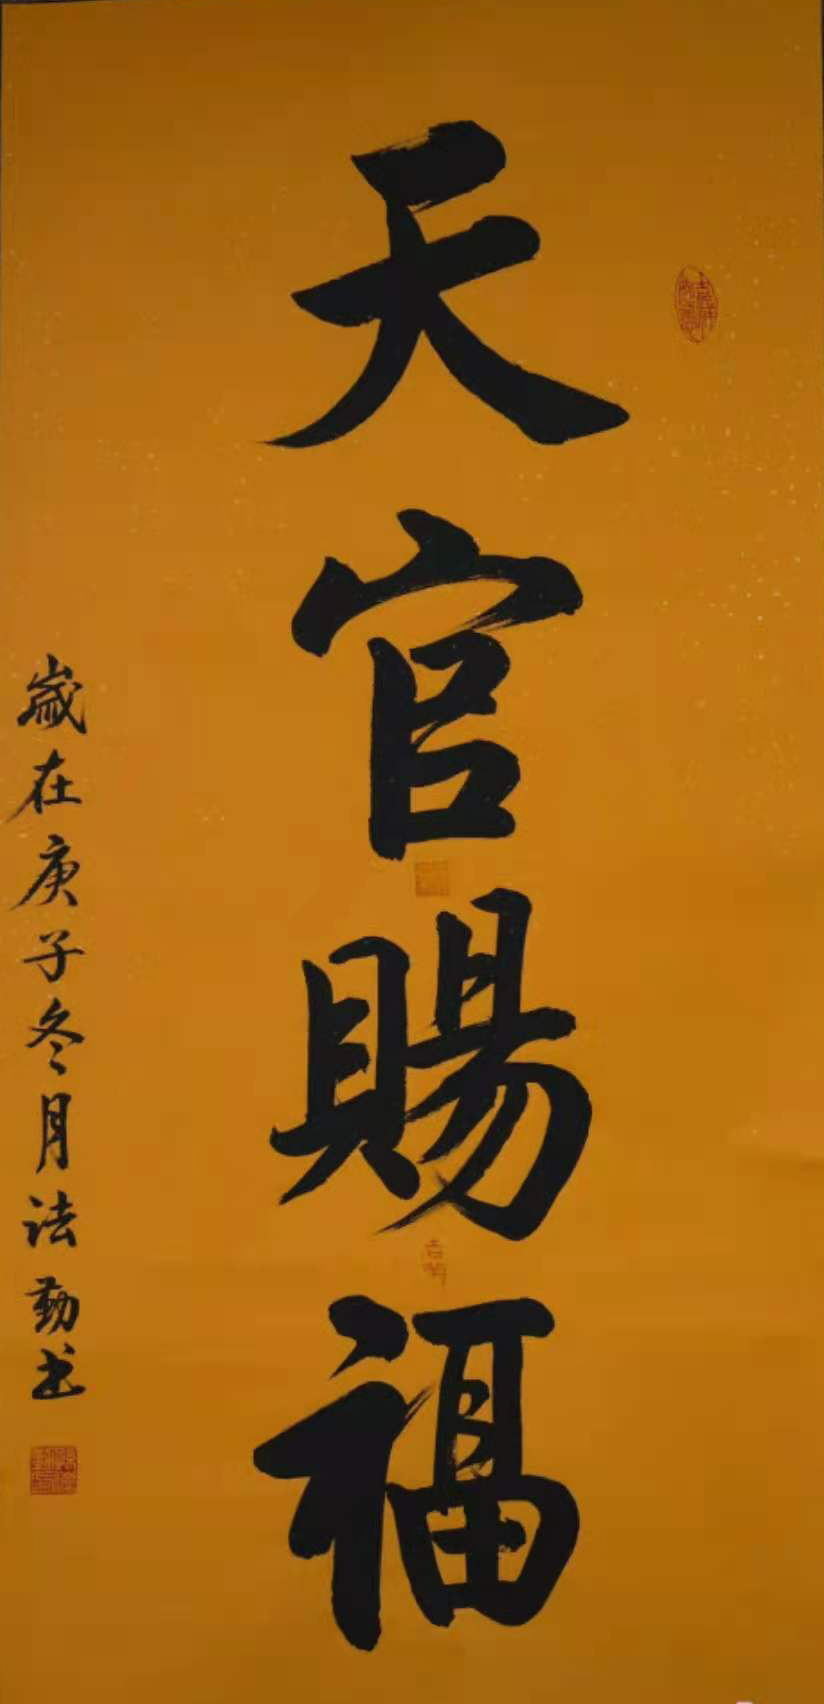 天官賜福
歲在庚子冬月法勤书